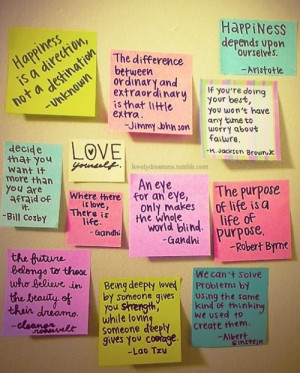 Happiness
is a direction,
not a destination
-unknown
The difference
between
ordinary and
extraordinary
is that little
extra.
-Jimmy Johnson
Happiness
depends upon
ourselves.
-Aristotle
If you're doing
your best,
you won't have
any time to
worry about
failure.
-H. Jackson Brown, Jr.
decide
that you
want it
more than
you are
afraid of
it.
-Bill Cosby
LOVE
yourself.
lovelydreamess.tumblr.com
Where there
is love,
There is
life.
-Gandhi
An eye
for an eye,
only makes
the whole
world blind.
-Gandhi
The purpose
of life is a
life of
purpose.
-Robert Byrne
the future
belongs to those
who believe in
the beauty of
their dreams.
-eleanor
roosevelt
Being deeply loved
by someone gives
you strength,
while loving
someone deeply
gives you courage.
-Lao Tzu
We can't solve
problems by
using the same
kind of thinking
we used to
create them.
-Albert
Einstein